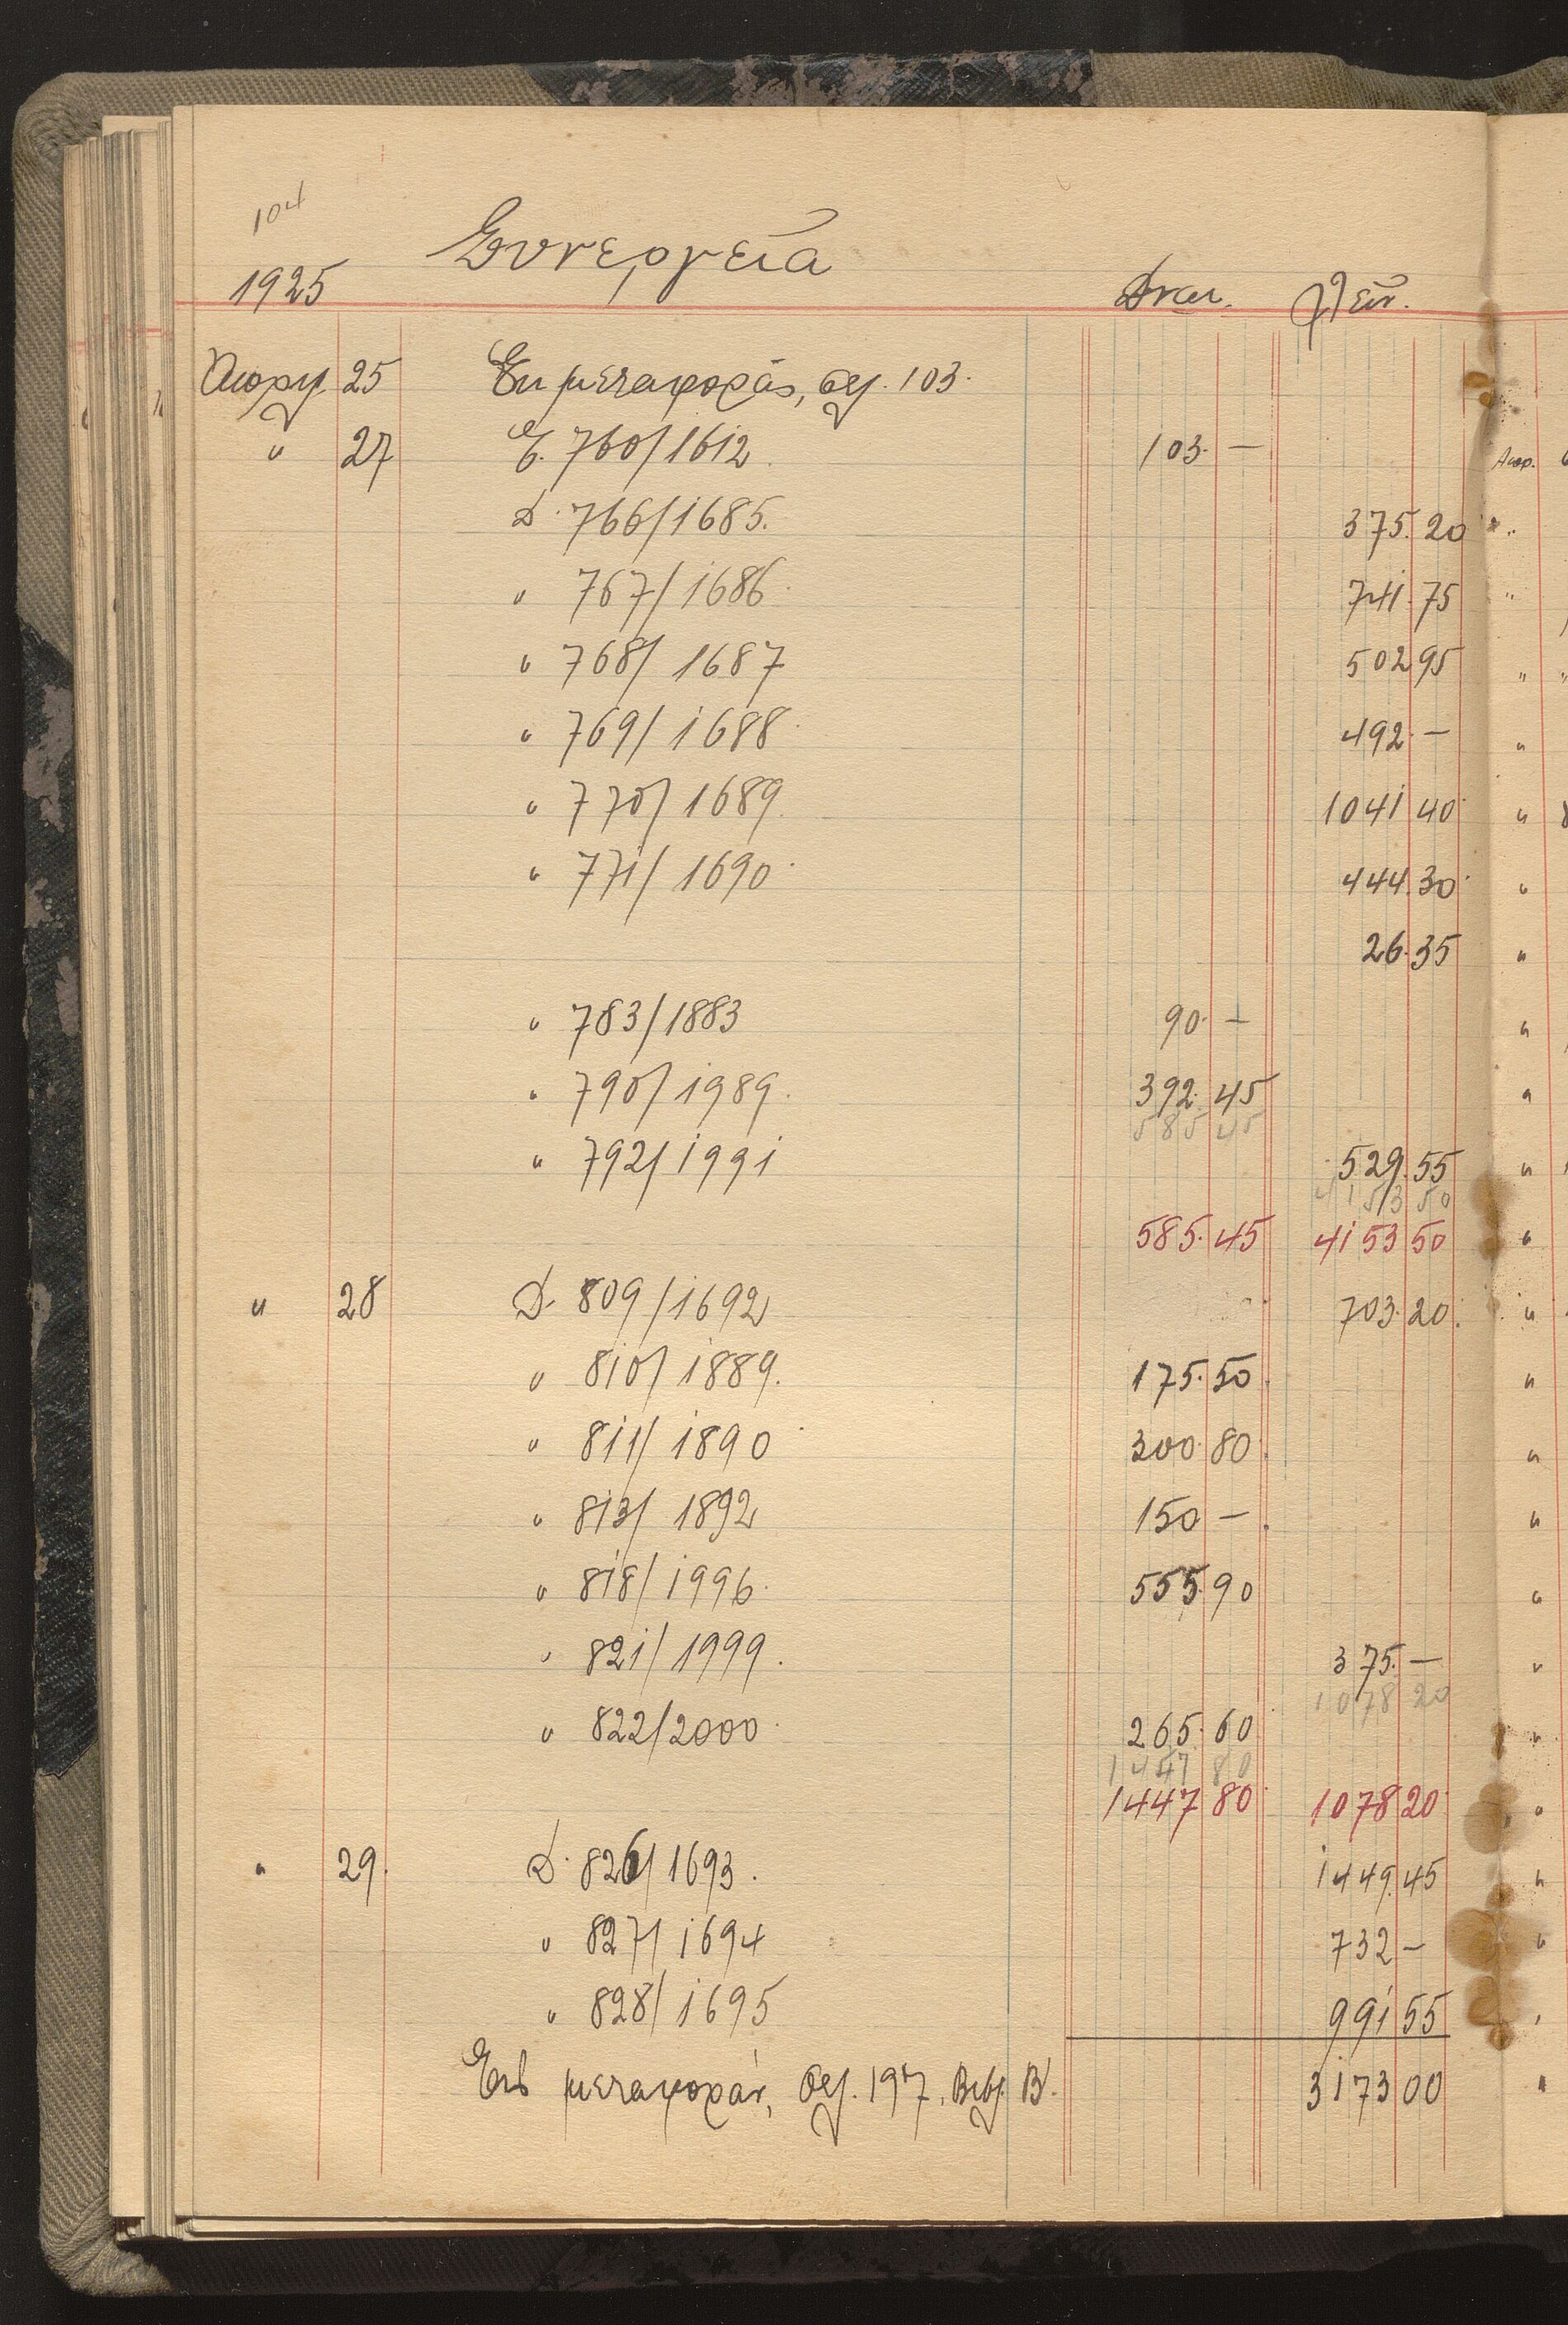 104
Συνεργεία
1925 Δναι. Πειν.
Απρι. 25 Εκ μεταφοράς, σελ. 103.
" 27 Ε. 760/1612 103. —
Δ. 766/1685. 375.20
" 767/1686. 741.75
" 768/1687 502 95
" 769/1688. 492. —
" 770/1689. 1041 40
" 771/1690. 444.30
26.35
" 783/1883 90. —
" 790/1989. 392.45
585 45
" 792/1991 529.55
4153 50
585.45 4153 50
" 28 Δ. 809/1692 703.20.
" 810/1889. 175.50.
" 811/1890. 300.80.
" 813/1892 150 —.
" 818/1996. 555.90
" 821/1999. 375. —
1078 20
" 822/2000. 265.60
1447 80
1447 80 1078 20
" 29. Δ. 826/1693. 1449.45
" 827/1694 732 —
" 828/1695 991 55
Εις μεταφοράν, σελ. 197. Βιβλ. Β'. 3173 00